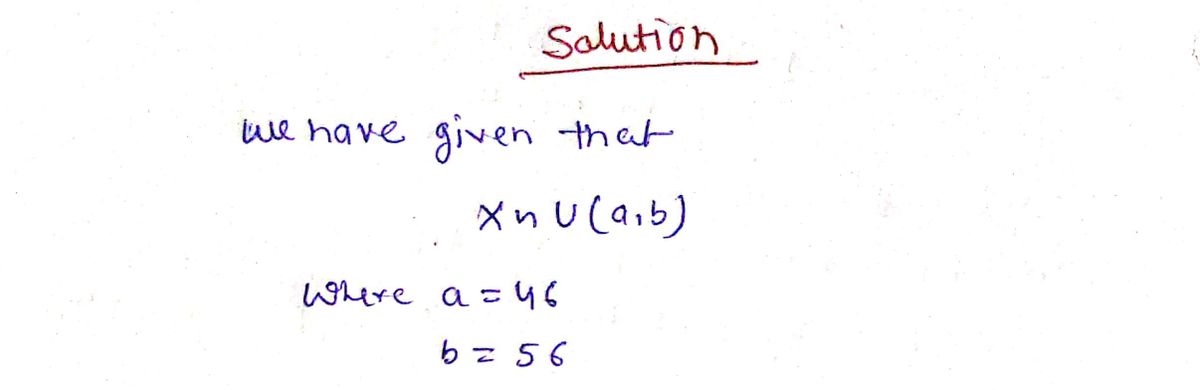 Solution
we have given that
X ~ U(a,b)
where a = 46
b = 56